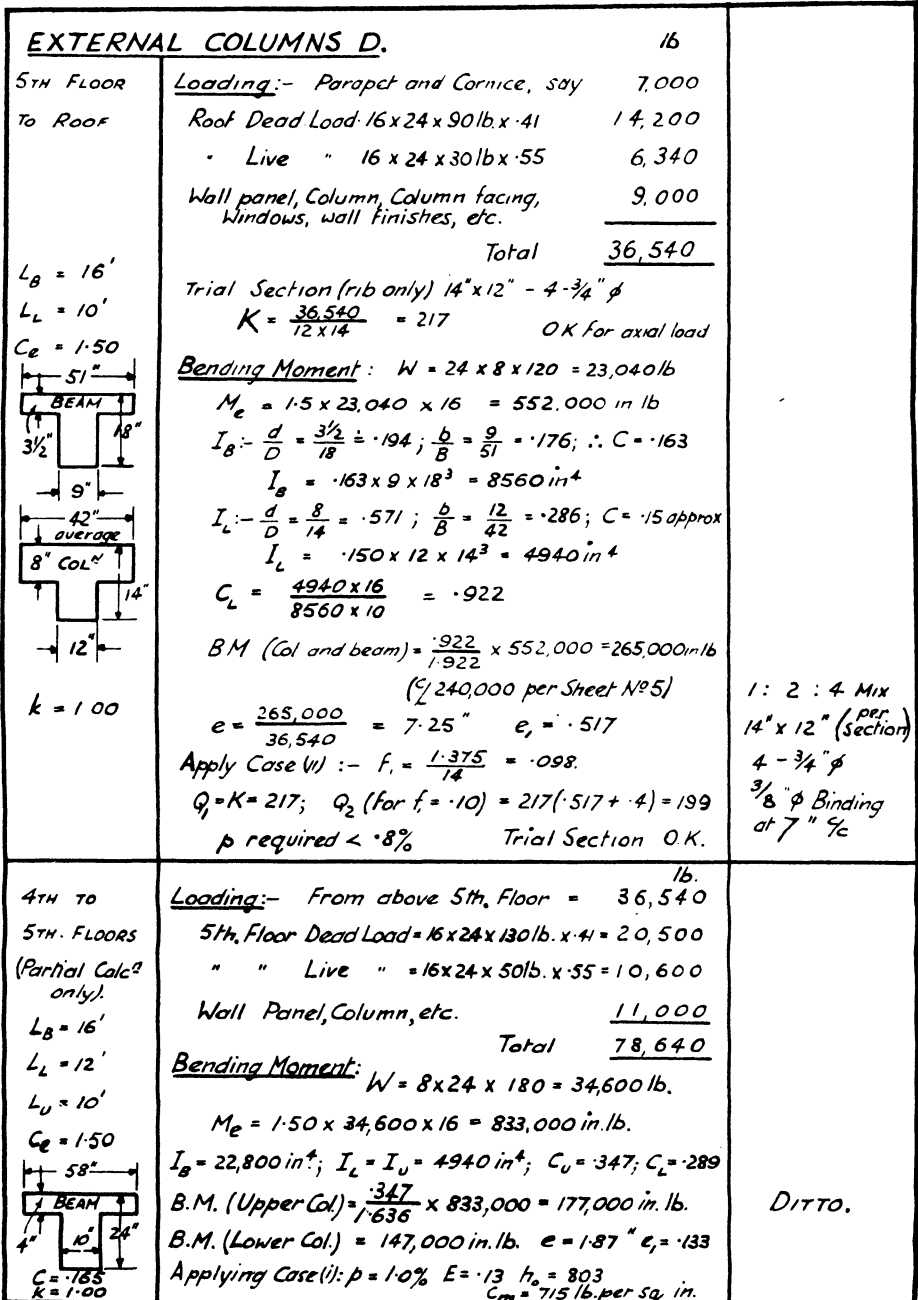 EXTERNAL COLUMNS D.
lb
5TH FLOOR
TO ROOF
LB = 16'
LL = 10'
Ce = 1·50
51"
BEAM
3½"
18"
9"
42"
average
8" COLN
14"
12"
k = 1·00
Loading:- Parapet and Cornice, say 7,000
Roof Dead Load 16x24x90lb. x ·41 14,200
" Live " 16 x 24 x 30lb x ·55 6,340
Wall panel, Column, Column facing, 9,000
Windows, wall finishes, etc.
Total 36,540
Trial Section (rib only) 14"x12" - 4-¾" φ
K = 36,540 / 12 x 14 = 217 OK for axial load
Bending Moment: W = 24 x 8 x 120 = 23,040 lb
Me = 1·5 x 23,040 x 16 = 552,000 in lb
IB:- d/D = 3½/18 ≐ ·194; b/B = 9/51 = ·176; ∴ C = ·163
IB = ·163 x 9 x 18³ = 8560 in⁴
IL:- d/D = 8/14 = ·571; b/B = 12/42 = ·286; C = ·15 approx
IL = ·150 x 12 x 14³ = 4940 in⁴
CL = 4940 x 16 / 8560 x 10 = ·922
BM (Col and beam) = ·922/1·922 x 552,000 = 265,000 in lb
(c/f 240,000 per Sheet Nº 5)
e = 265,000 / 36,540 = 7·25" e₁ = ·517
Apply Case (ii) :- f₁ = 1·375/14 = ·098.
Q₁ = K = 217; Q₂ (for f₁ = ·10) = 217(·517 + ·4) = 199
p required < ·8% Trial Section O.K.
1 : 2 : 4 Mix
14" x 12" (per section)
4 - ¾" φ
⅜" φ Binding
at 7" c/c
4TH TO
5TH. FLOORS
(Partial Calcn
only).
LB = 16'
LL = 12'
LU = 10'
Ce = 1·50
58"
BEAM
4"
10"
24"
C = ·165
K = 1·00
lb.
Loading:- From above 5th. Floor = 36,540
5th. Floor Dead Load = 16x24x130lb. x ·41 = 20,500
" " Live " = 16x24x50lb. x ·55 = 10,600
Wall Panel, Column, etc. 11,000
Total 78,640
Bending Moment:
W = 8x24 x 180 = 34,600 lb.
Me = 1·50 x 34,600 x 16 = 833,000 in. lb.
IB = 22,800 in⁴; IL = IU = 4940 in⁴; CU = ·347; CL = ·289
B.M. (Upper Col.) = ·347/1·636 x 833,000 = 177,000 in. lb.
B.M. (Lower Col.) = 147,000 in. lb. e = 1·87" e₁ = ·133
Applying Case (i): p = 1·0% E = ·13 h₀ = 803
Cm = 715 lb. per sq. in.
DITTO.